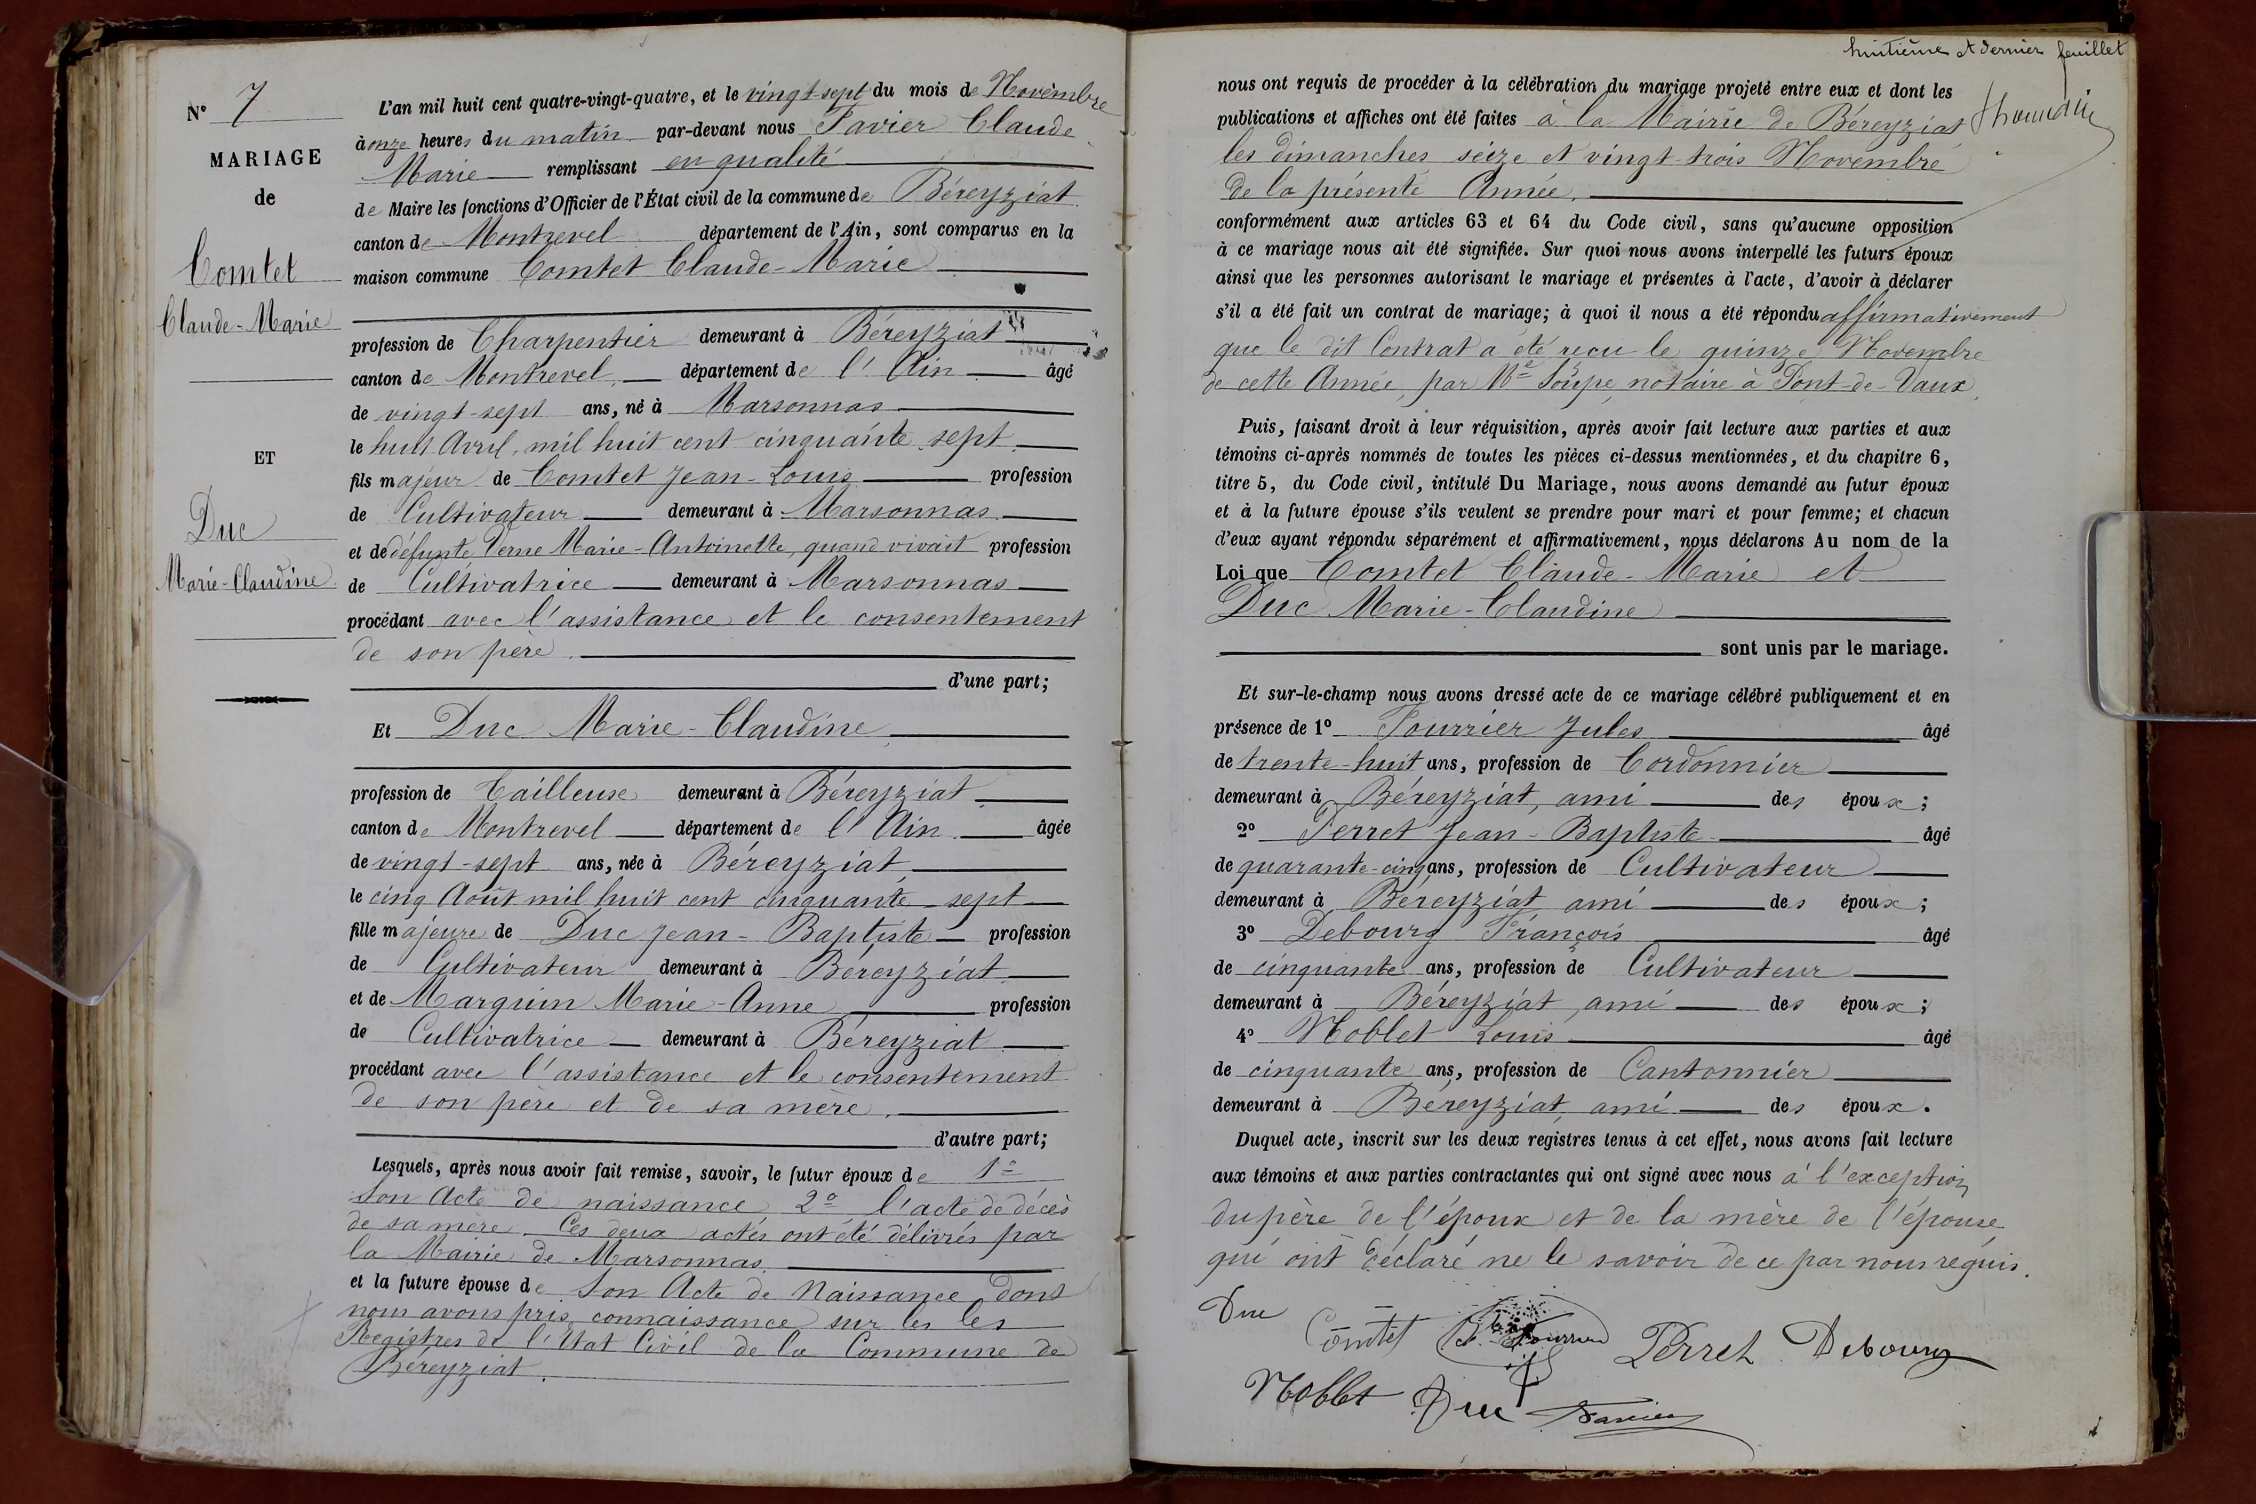 N° 7
MARIAGE
de
Comtet
Claude-Marie
ET
Duc
Marie-Claudine
L'an mil huit cent quatre-vingt-quatre, et le vingt-sept du mois de Novembre
à onze heures du matin par-devant nous Favier Claude
Marie remplissant en qualité
de Maire les fonctions d'Officier de l'État civil de la commune de Béreyziat
canton de Montrevel département de l'Ain, sont comparus en la
maison commune Comtet Claude-Marie
profession de Charpentier demeurant à Béreyziat
canton de Montrevel département de l'Ain âgé
de vingt-sept ans, né à Marsonnas
le huit Avril, mil huit cent cinquante sept
fils majeur de Comtet Jean-Louis profession
de Cultivateur demeurant à Marsonnas
et de défunte Verne Marie-Antoinette, quand vivait profession
de Cultivatrice demeurant à Marsonnas
procédant avec l'assistance et le consentement
de son père.
d'une part;
Et Duc Marie-Claudine
profession de Tailleuse demeurant à Béreyziat
canton de Montrevel département de l'Ain âgée
de vingt-sept ans, née à Béreyziat
le cinq Août mil huit cent cinquante-sept
fille majeure de Duc Jean-Baptiste profession
de Cultivateur demeurant à Béreyziat
et de Marguin Marie-Anne profession
de Cultivatrice demeurant à Béreyziat
procédant avec l'assistance et le consentement
de son père et de sa mère.
d'autre part;
Lesquels, après nous avoir fait remise, savoir, le futur époux de 1°
son Acte de naissance 2° l'acte de décès
de sa mère. Ces deux actes ont été délivrés par
la Mairie de Marsonnas.
et la future épouse de son Acte de Naissance dont
nous avons pris connaissance sur les les
Registres de l'Etat Civil de la Commune de
Béreyziat.
huitième et dernier feuillet
nous ont requis de procéder à la célébration du mariage projeté entre eux et dont les
publications et affiches ont été faites à la Mairie de Béreyziat
les dimanches seize et vingt-trois Novembre
de la présente Année.
conformément aux articles 63 et 64 du Code civil, sans qu'aucune opposition
à ce mariage nous ait été signifiée. Sur quoi nous avons interpellé les futurs époux
ainsi que les personnes autorisant le mariage et présentes à l'acte, d'avoir à déclarer
s'il a été fait un contrat de mariage; à quoi il nous a été répondu affirmativement
que le dit Contrat a été reçu le quinze Novembre
de cette Année, par Me Soupe, notaire à Pont-de-Vaux.
Puis, faisant droit à leur réquisition, après avoir fait lecture aux parties et aux
témoins ci-après nommés de toutes les pièces ci-dessus mentionnées, et du chapitre 6,
titre 5, du Code civil, intitulé Du Mariage, nous avons demandé au futur époux
et à la future épouse s'ils veulent se prendre pour mari et pour femme; et chacun
d'eux ayant répondu séparément et affirmativement, nous déclarons Au nom de la
Loi que Comtet Claude-Marie et
Duc Marie-Claudine
sont unis par le mariage.
Et sur-le-champ nous avons dressé acte de ce mariage célébré publiquement et en
présence de 1° Fourrier Jules âgé
de trente-huit ans, profession de Cordonnier
demeurant à Béreyziat, ami des époux;
2° Perret Jean-Baptiste âgé
de quarante-cinq ans, profession de Cultivateur
demeurant à Béreyziat ami des époux;
3° Debourg François âgé
de cinquante ans, profession de Cultivateur
demeurant à Béreyziat, ami des époux;
4° Noblet Louis âgé
de cinquante ans, profession de Cantonnier
demeurant à Béreyziat, ami des époux.
Duquel acte, inscrit sur les deux registres tenus à cet effet, nous avons fait lecture
aux témoins et aux parties contractantes qui ont signé avec nous à l'exception
du père de l'époux et de la mère de l'épouse
qui ont déclaré ne le savoir de ce par nous réquis.
Duc
Comtet Fourrier Perret Debourg
Noblet Duc Favier